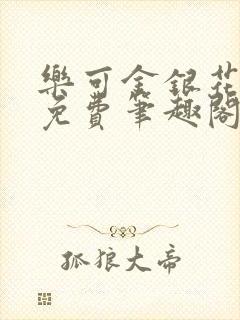 樂可金銀花
免費筆趣閣
孤狼大帝